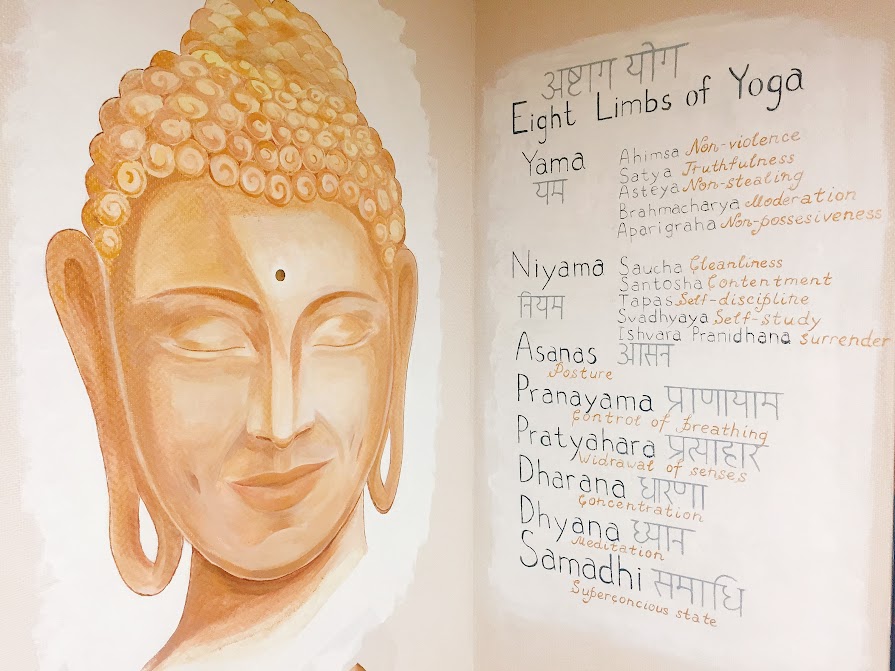 अष्टाग योग
Eight Limbs of Yoga
Yama
यम
Ahimsa Non-violence
Satya Truthfulness
Asteya Non-stealing
Brahmacharya Moderation
Aparigraha Non-possesiveness
Niyama
नियम
Saucha Cleanliness
Santosha Contentment
Tapas Self-discipline
Svadhyaya Self-study
Ishvara Pranidhana surrender
Asanas आसन
Posture
Pranayama प्राणायाम
Control of breathing
Pratyahara प्रत्याहार
Widrawal of senses
Dharana धारणा
Concentration
Dhyana ध्यान
Meditation
Samadhi समाधि
Superconcious state